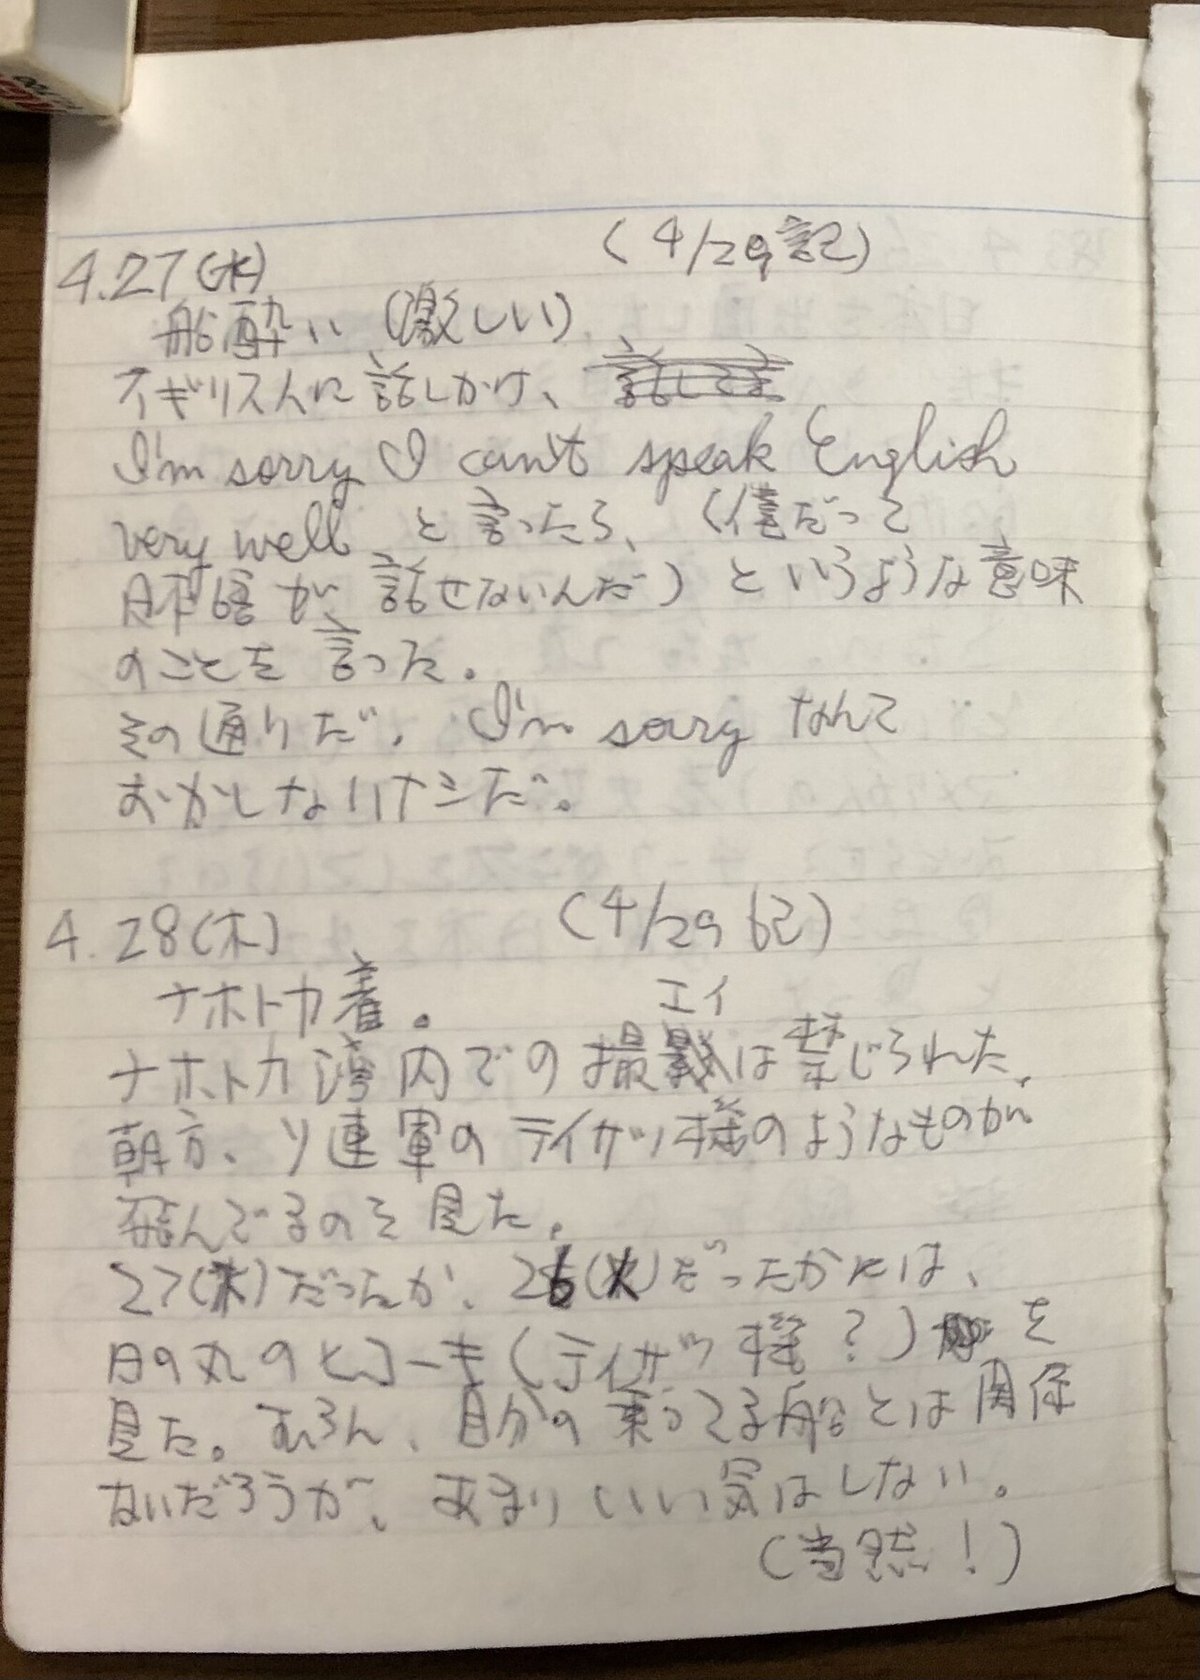 4.27(水) (4/29記)
船酔い (激しい)
イギリス人に話しかけ、
I'm sorry I can't speak English
very well と言ったら、(僕だって
日本語が、話せないんだ) というような意味
のことを言った。
その通りだ。I'm sorry なんて
おかしなハナシだ。
4.28(木) (4/29 記)
ナホトカ着。
エイ
ナホトカ湾内での撮影は禁じられた。
朝方、ソ連軍のテイサツ機のようなものが
飛んでるのを見た。
27(水)だったか、26(火)だったかには、
日の丸のヒコーキ(テイサツ機?)を
見た。むろん、自分の乗ってる船とは関係
ないだろうが、あまりいい気はしない。
(当然!)